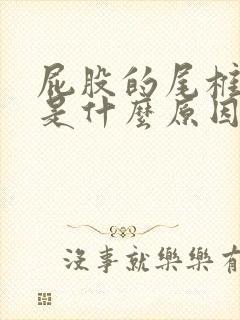 屁股的尾椎
是什麼原因
沒事就樂樂有